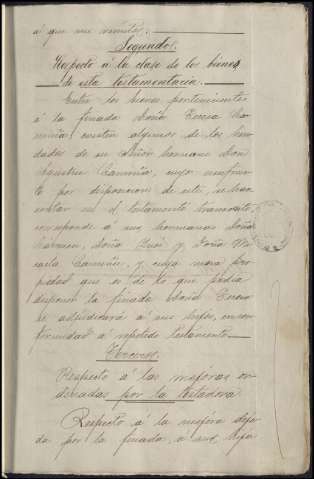 á que me remito.
Segundo.
Respecto á la clase de los bienes
de esta testamentaria.
Entre los bienes pertenecientes
á la finada Doña Teresa Ca
miña, existen algunos de los here
dados de su Señor hermano Don
Camiña, cuyo usufruc
to por disposicion de este, y hace
constar en el testamento transcrito,
corresponde á sus hermanas Doña
Carmen, Doña y Doña Mi
caela Camiña, y cuya nuda pro
piedad que es de lo que podia
disponer la finada Doña Teresa
se adjudicará á sus hijos, en con
formidad á repetido testamento.
Tercero.
Respecto á las mejoras or
denadas por la testadora
Respecto á la mejora deja
da por la finada, á sus hija